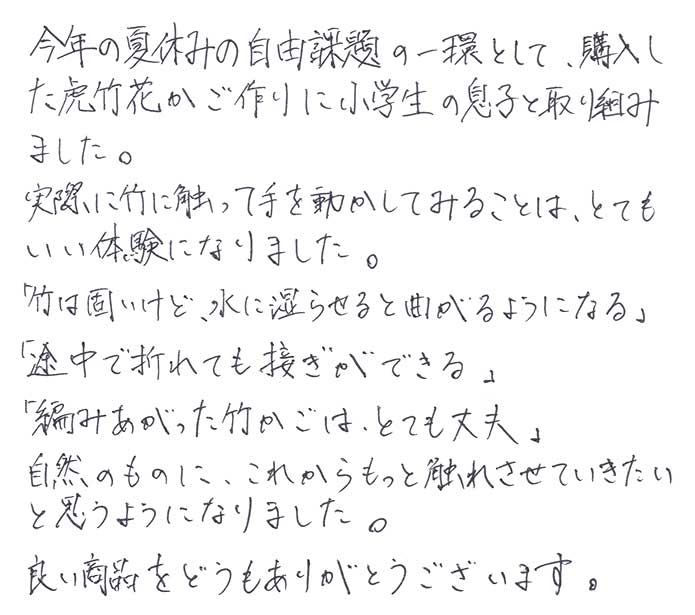 今年の夏休みの自由課題の一環として、購入し
た虎竹花かご作りに小学生の息子と取り組み
ました。
実際に竹に触って手を動かしてみることは、とても
いい体験になりました。
「竹は固いけど、水に湿らせると曲がるようになる」
「途中で折れても接ぎができる」
「編みあがった竹かごは、とても丈夫」
自然のものに、これからもっと触れさせていきたい
と思うようになりました。
良い商品をどうもありがとうございます。